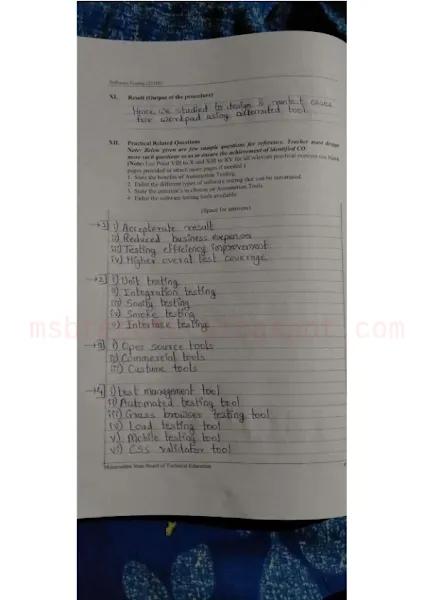 Software Testing (22518)
XI. Result (Output of the procedure)
Hence we studied to design & run test cases
for wordpad using automated tool.
XII. Practical Related Questions
Note: Below given are few sample questions for reference. Teacher must design
more such questions so as to ensure the achievement of identified CO.
(Note: Use Point VIII to X and XIII to XV for all relevant practical exercises use blank
pages provided or attach more pages if needed.)
1. State the benefits of Automation Testing.
2. Enlist the different types of software testing that can be automated.
3. State the criterion's to choose an Automation Tools.
4. Enlist the software testing tools available.
(Space for answers)
i) Accelerate result
ii) Reduced business expenses
iii) Testing efficiency improvement
iv) Higher overal test coverage
→2] i) Unit testing
ii) Integration testing
iii) Sanity testing
iv) Smoke testing
v) Interface testing
→3] i) Open source tools
ii) Commercial tools
iii) Custume tools
→4] i) test management tool
ii) Automated testing tool
iii) Grass browser testing tool
iv) Load testing tool
v) Mobile testing tool
vi) CSS validator tool
Maharashtra State Board of Technical Education